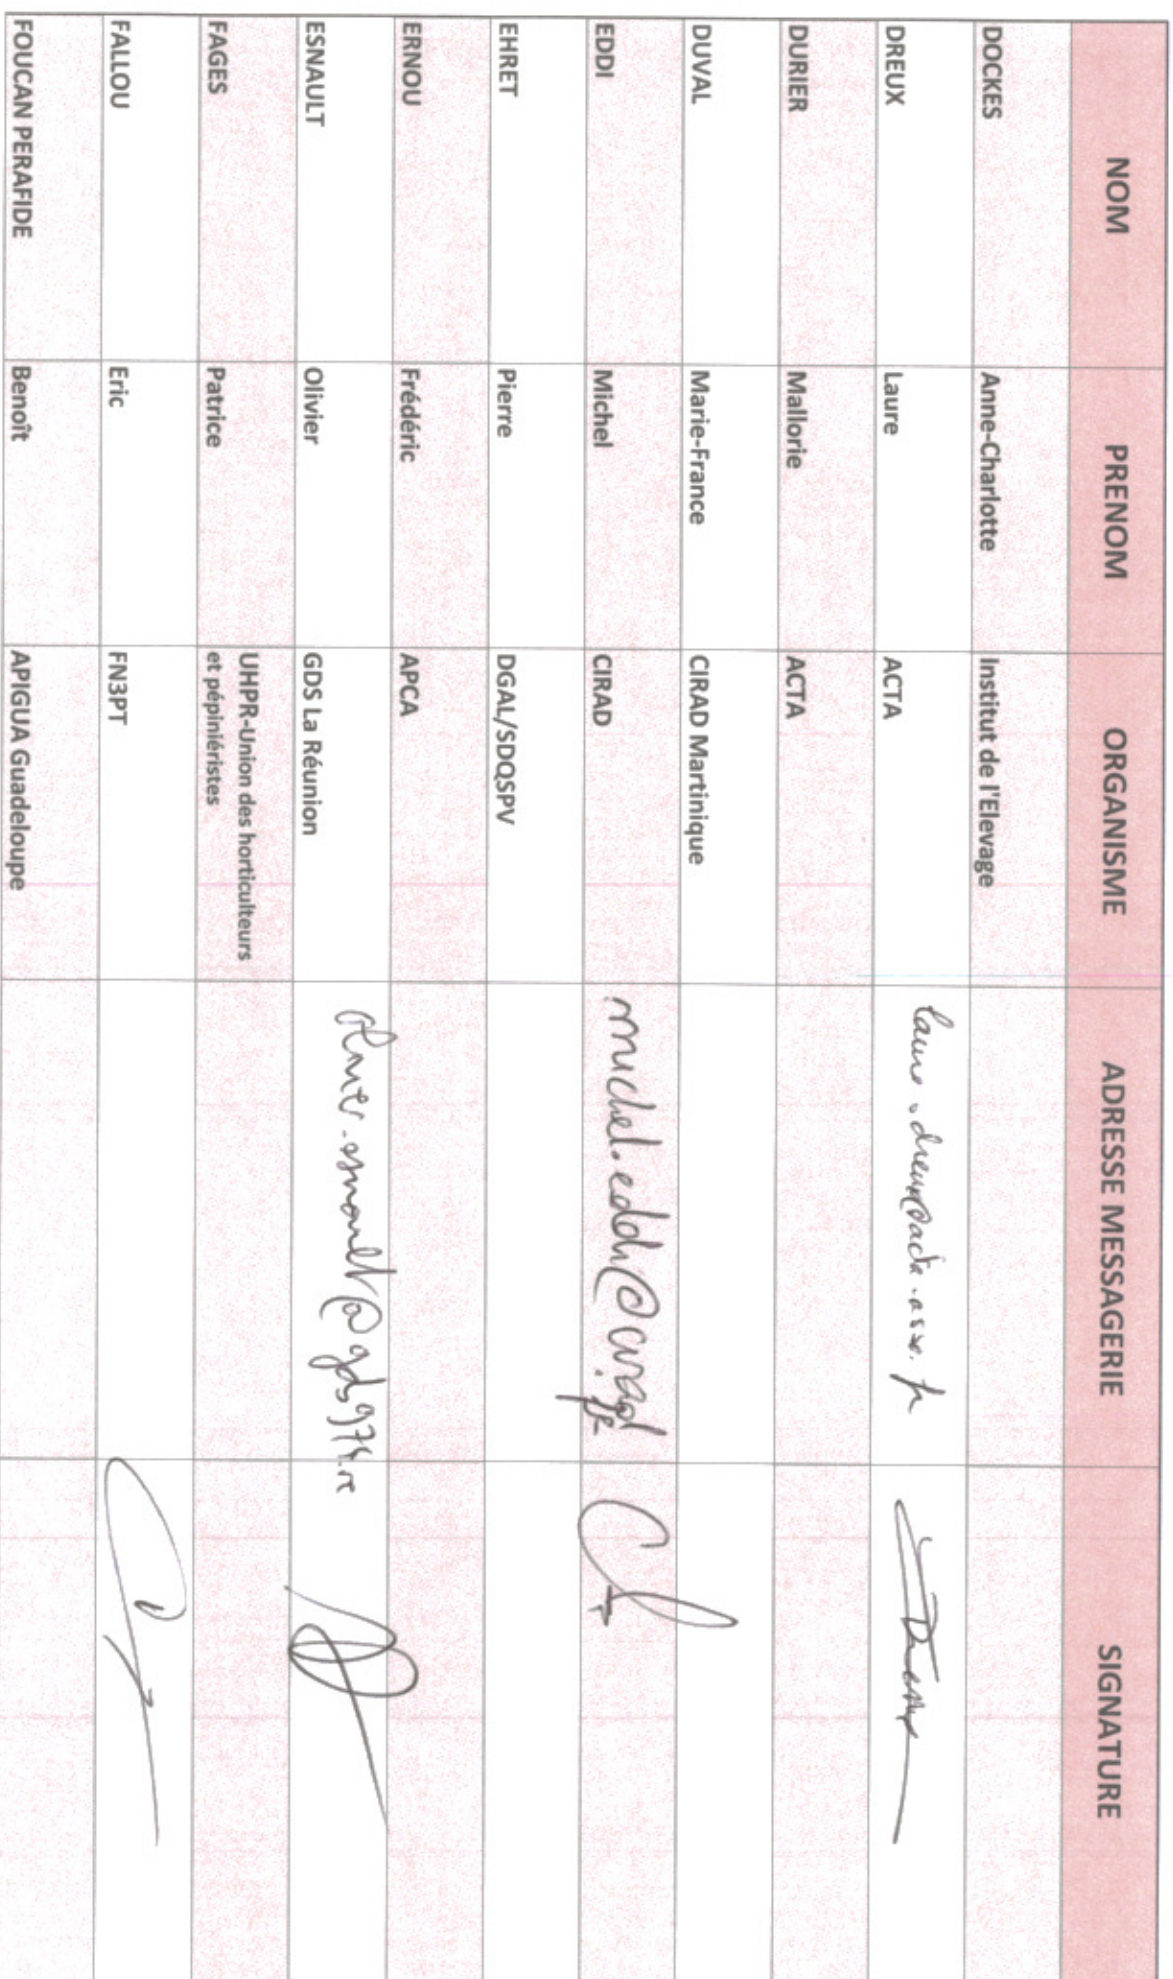 NOM PRENOM ORGANISME ADRESSE MESSAGERIE SIGNATURE
DOCKES Anne-Charlotte Institut de l'Elevage
DREUX Laure ACTA laure.dreux@acta.asso.fr
DURIER Mallorie ACTA
DUVAL Marie-France CIRAD Martinique
EDDI Michel CIRAD michel.eddi@cirad.fr
EHRET Pierre DGAL/SDQSPV
ERNOU Frédéric APCA
ESNAULT Olivier GDS La Réunion olivier.esnault@gds974.re
FAGES Patrice UHPR-Union des horticulteurs
et pépiniéristes
FALLOU Eric FN3PT
FOUCAN PERAFIDE Benoît APIGUA Guadeloupe